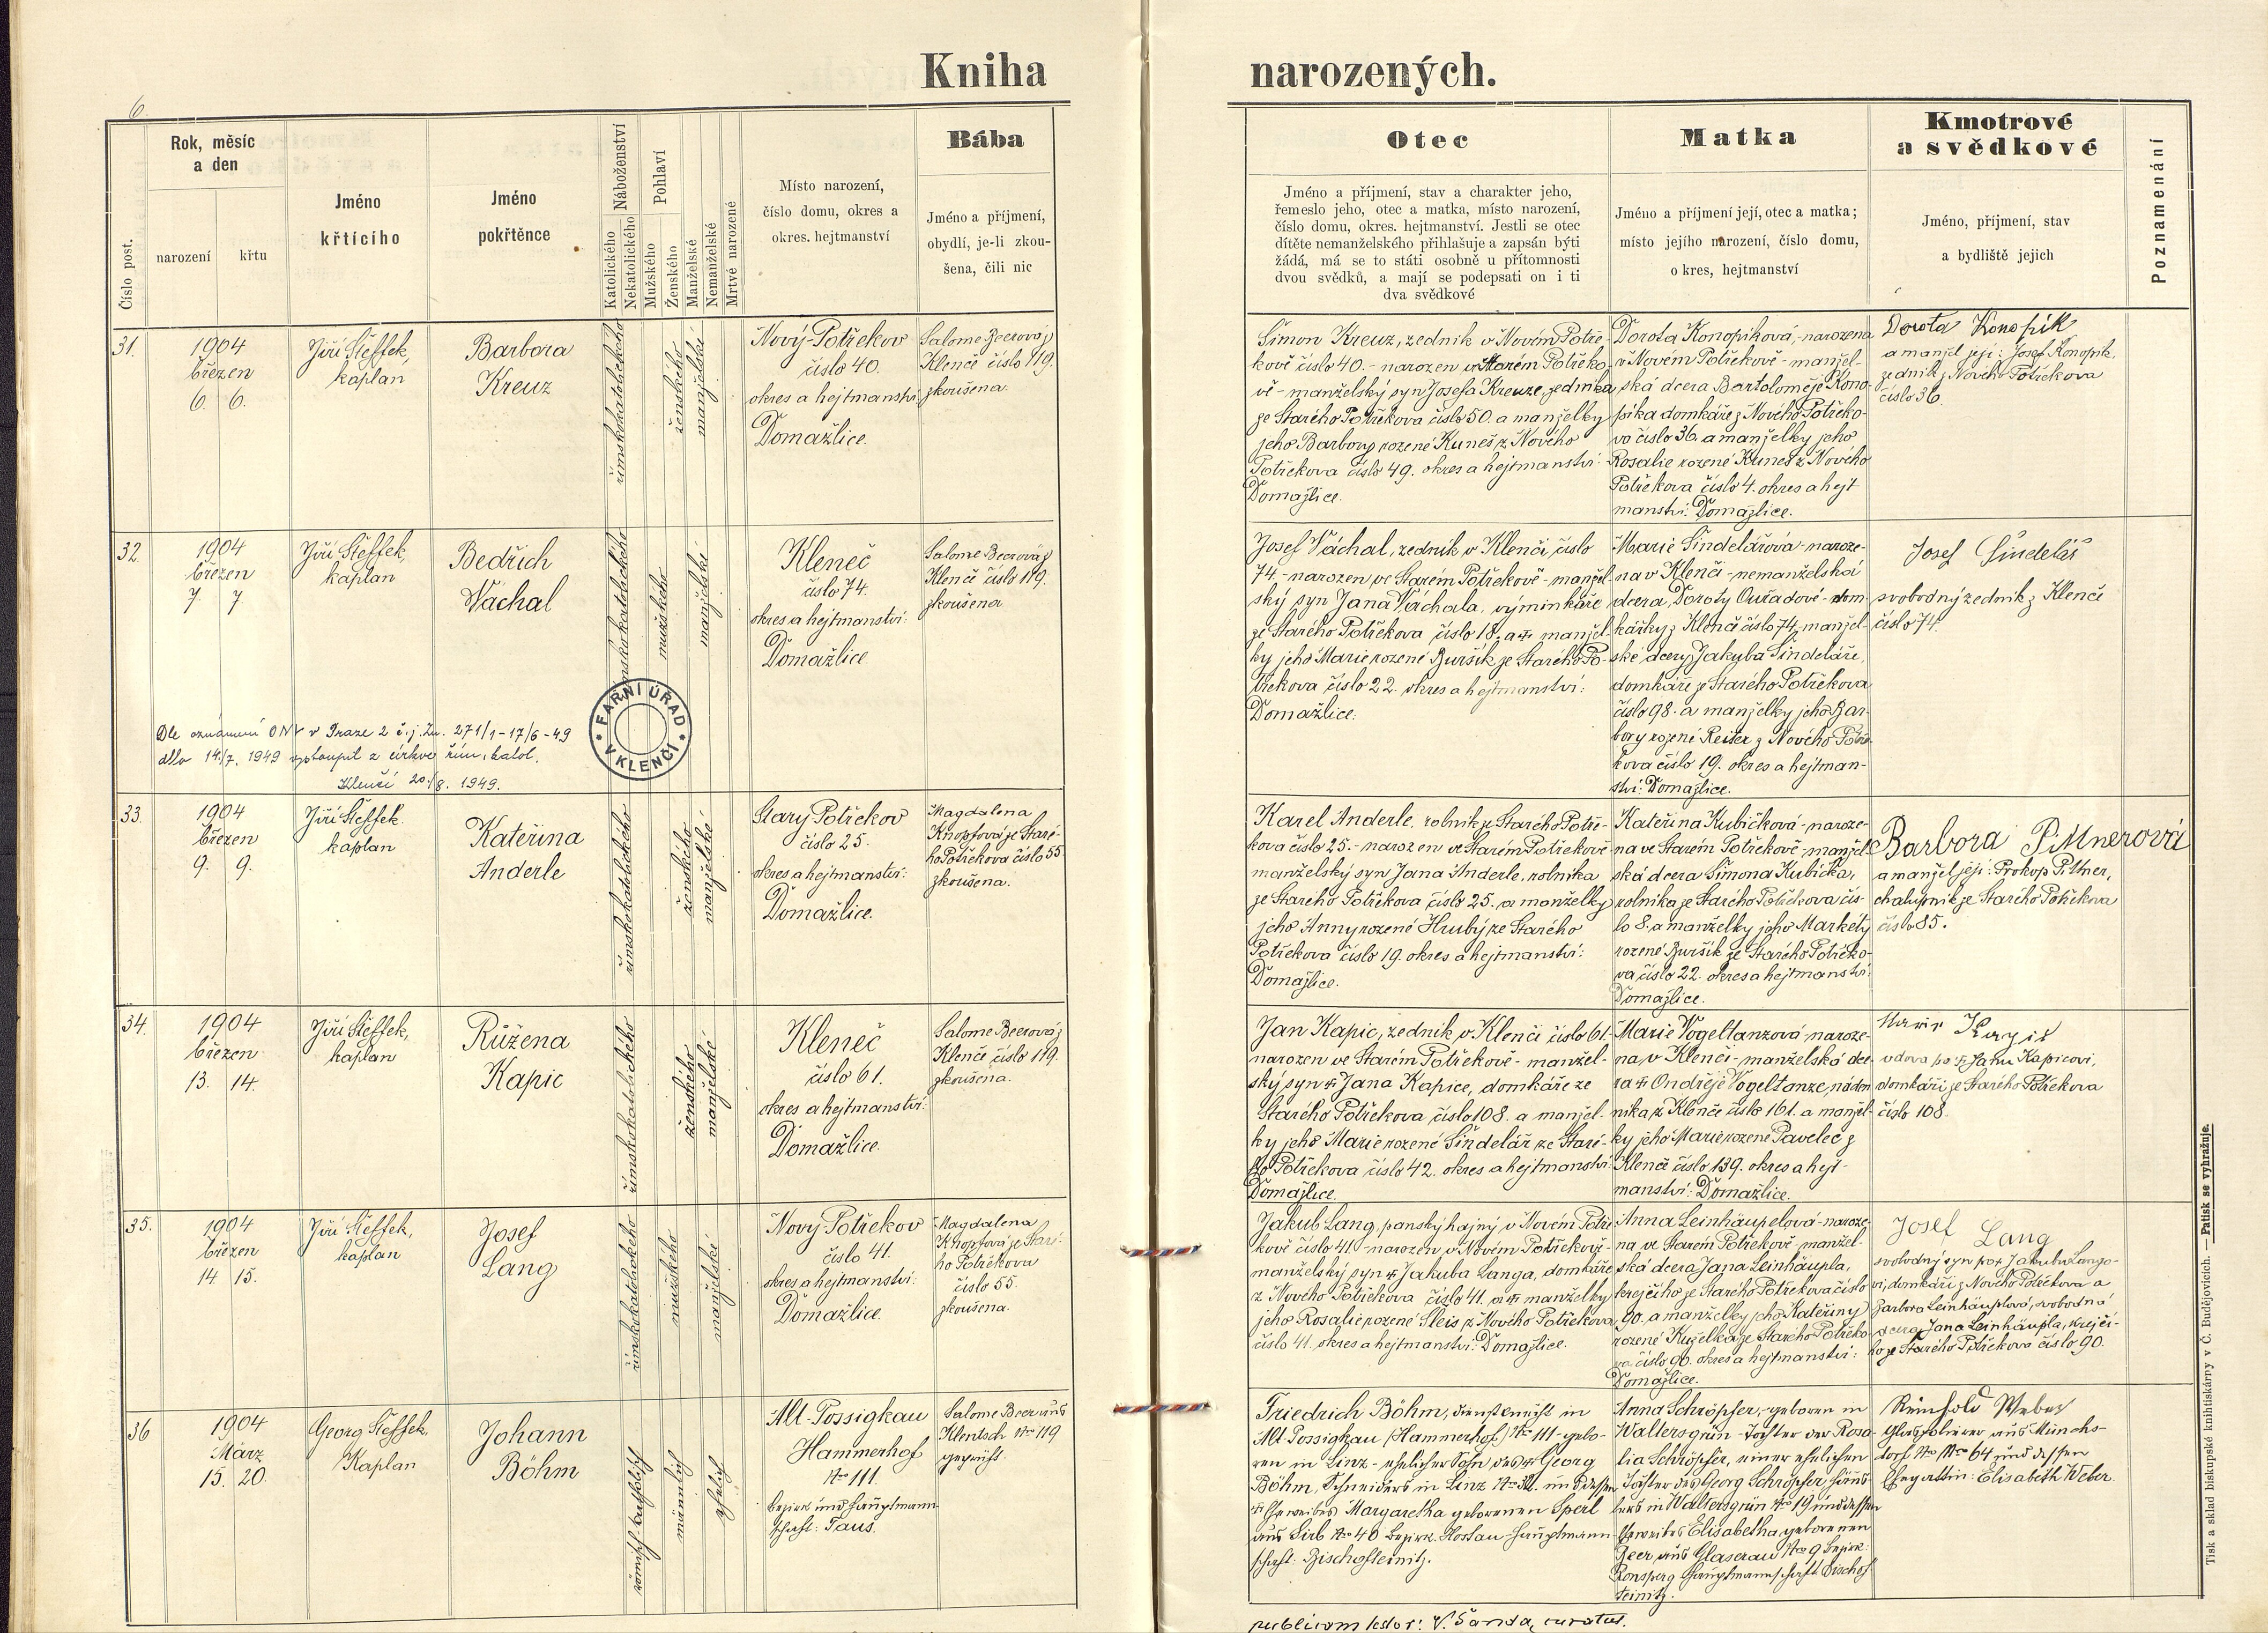 Kniha narozených.
6.
Číslo post.
Rok, měsíc
a den
narození
křtu
Jméno
křtícího
Jméno
pokřtěnce
Náboženství
Katolického
Nekatolického
Pohlaví
Mužského
Ženského
Manželské
Nemanželské
Mrtvě narozené
Místo narození,
číslo domu, okres a
okres. hejtmanství
Bába
Jméno a příjmení,
obydlí, je-li zkou-
šena, čili nic
Otec
Jméno a příjmení, stav a charakter jeho,
řemeslo jeho, otec a matka, místo narození,
číslo domu, okres. hejtmanství. Jestli se otec
dítěte nemanželského přihlašuje a zapsán býti
žádá, má se to státi osobně u přítomnosti
dvou svědků, a mají se podepsati on i ti
dva svědkové
Matka
Jméno a příjmení její, otec a matka;
místo jejího narození, číslo domu,
okres, hejtmanství
Kmotrové
a svědkové
Jméno, příjmení, stav
a bydliště jejich
Poznamenání
31.
1904
březen
6. 6.
Jiří Šteffek,
kaplan
Barbora
Kreuz
římskokatolického
ženského
manželské
Nový-Potřekov
číslo 40.
okres a hejtmanství:
Domažlice.
Salome Beerová z
Klenče číslo 119.
zkoušena.
Šimon Kreuz, zedník v Novém Potře-
kově číslo 40. - narozen ve Starém Potřeko-
vě - manželský syn Josefa Kreuze, zedníka
ze Starého Potřekova číslo 50. a manželky
jeho Barbory rozené Kuneš z Nového
Potřekova číslo 49. okres a hejtmanství:
Domažlice.
Dorota Konopíková, - narozena
v Novém Potřekově - manžel-
ská dcera Bartoloměje Kono-
píka domkáře z Nového Potřeko-
va číslo 36. a manželky jeho
Rosalie rozené Kuneš z Nového
Potřekova číslo 4. okres a hejt-
manství: Domažlice.
Dorota Konopík
a manžel její: Josef Konopík,
zedník z Nového Potřekova
číslo 36.
32.
1904
březen
7. 7.
Jiří Šteffek,
kaplan
Bedřich
Váchal
římskokatolického
mužského
manželské
Kleneč
číslo 74.
okres a hejtmanství:
Domažlice
Salome Beerová z
Klenče číslo 119.
zkoušena
Josef Váchal, zedník v Klenči, číslo
74. - narozen ve Starém Potřekově - manžel-
ský syn Jana Váchala, výminkáře
ze Starého Potřekova číslo 18. a manžel-
ky jeho Marie rozené Buršík ze Starého Po-
třekova číslo 22. okres a hejtmanství:
Domažlice.
Marie Šindelářová - naroze-
na v Klenči - nemanželská
dcera Doroty Ouřadové - dom-
kářky z Klenče číslo 74, manžel-
ské dcery Jakuba Šindeláře,
domkáře ze Starého Potřekova
číslo 98. a manželky jeho Bar-
bory rozené Reiser z Nového Potře-
kova číslo 19. okres a hejtman-
ství: Domažlice.
Josef Šindelář
svobodný zedník z Klenče
číslo 74.
Dle oznámení ONV v Praze 2 č.j. 271/1-17/6-49
dto 14./7. 1949 vystoupil z církve řím. katol.
Klenčí 20./8. 1949.
FARNÍ ÚŘAD V KLENČÍ
33.
1904
březen
9. 9.
Jiří Šteffek.
kaplan
Kateřina
Anderle
římskokatolického
ženského
manželské
Starý-Potřekov
číslo 25.
okres a hejtmanství:
Domažlice.
Magdalena
Knopfová ze Staré-
ho Potřekova číslo 55
zkoušena.
Karel Anderle, rolník ze Starého Potře-
kova číslo 25. - narozen ve Starém Potřekově -
manželský syn Jana Anderle, rolníka
ze Starého Potřekova číslo 25. a manželky
jeho Anny rozené Hrubý ze Starého
Potřekova číslo 19. okres a hejtmanství:
Domažlice.
Kateřina Kubičková - naroze-
na ve Starém Potřekově - manžel-
ská dcera Šimona Kubička,
rolníka ze Starého Potřekova čís-
lo 8. a manželky jeho Markéty
rozené Buršík ze Starého Potřeko-
va číslo 22. okres a hejtmanství:
Domažlice.
Barbora Pittnerová
a manžel její: Prokop Pittner,
chalupník ze Starého Potřekova
číslo 85.
34.
1904
březen
13. 14.
Jiří Šteffek,
kaplan
Růžena
Kapic
římskokatolického
ženského
manželské
Kleneč
číslo 61.
okres a hejtmanství:
Domažlice.
Salome Beerová z
Klenče číslo 119.
zkoušena.
Jan Kapic, zedník v Klenči číslo 61.
narozen ve Starém Potřekově - manžel-
ský syn Jana Kapice, domkáře ze
Starého Potřekova číslo 108. a manžel-
ky jeho Marie rozené Šindelář ze Staré-
ho Potřekova číslo 42. okres a hejtmanství:
Domažlice.
Marie Vogeltanzová - naroze-
na v Klenči - manželská dce-
ra Ondřeje Vogeltanze, náden-
níka z Klenče číslo 161. a manžel-
ky jeho Marie rozené Pavelec z
Klenče číslo 139. okres a hejt-
manství: Domažlice.
Marie Kapic
vdova po Janu Kapicovi,
domkáři ze Starého Potřekova
číslo 108.
35.
1904
březen
14 15.
Jiří Šteffek,
kaplan
Josef
Lang
římskokatolického
mužského
manželské
Nový-Potřekov
číslo 41.
okres a hejtmanství:
Domažlice.
Magdalena
Knopfová ze Staré-
ho Potřekova
číslo 55.
zkoušena.
Jakub Lang, panský hajný v Novém Potře-
kově číslo 41. - narozen v Novém Potřekově -
manželský syn Jakuba Langa, domkáře
z Nového Potřekova číslo 41. a manželky
jeho Rosalie rozené Sleis z Nového Potřekova
číslo 41. okres a hejtmanství: Domažlice.
Anna Leinhäupelová - naroze-
na ve Starém Potřekově - manžel-
ská dcera Jana Leinhäupla,
krejčího ze Starého Potřekova číslo
90. a manželky jeho Kateřiny
rozené Kuželka ze Starého Potřeko-
va číslo 90. okres a hejtmanství:
Domažlice.
Josef Lang
svobodný syn po Jakubu Lango-
vi, domkáři z Nového Potřekova a
Barbora Leinhäuplová, svobodná
dcera Jana Leinhäupla, krejčí-
ho ze Starého Potřekova číslo 90.
36
1904
März
15. 20.
Georg Šteffek,
Kaplan
Johann
Böhm
römisch katholisch
männlich
ehelich
Alt-Possigkau
Hammerhof
Nro 111.
Bezirk und Hauptmann-
schaft: Taus.
Salome Beer aus
Klentsch Nro 119
geprüft.
Friedrich Böhm, Dienstknecht in
Alt-Possigkau (Hammerhof) Nro 111 - gebo-
ren in Linz - ehelicher Sohn des Georg
Böhm, Schneiders in Linz Nro 32. und dessen
Eheweibes Margaretha geborenen Sperl
aus Sirb Nro 40 Bezirk. Hostau - Hauptmann-
schaft: Bischofteinitz.
Anna Schröpfer, - geboren in
Waltersgrün - Tochter der Rosa-
lia Schröpfer, einer ehelichen
Tochter des Georg Schröpfer Häus-
lers in Waltersgrün Nro 19 und dessen
Eheweibes Elisabetha, geborenen
Beer aus Glaserau Nro 9 Bezirk:
Ronsperg Hauptmannschaft Bischof-
teinitz.
Reinhold Weber
Glaspolierer aus Münchs-
dorf Nro 64 und dessen
Ehegattin: Elisabeth Weber.
V. Šanda, curatus.
Tisk a sklad biskupské knihtiskárny v Č. Budějovicích. — Patisk se vyhražuje.